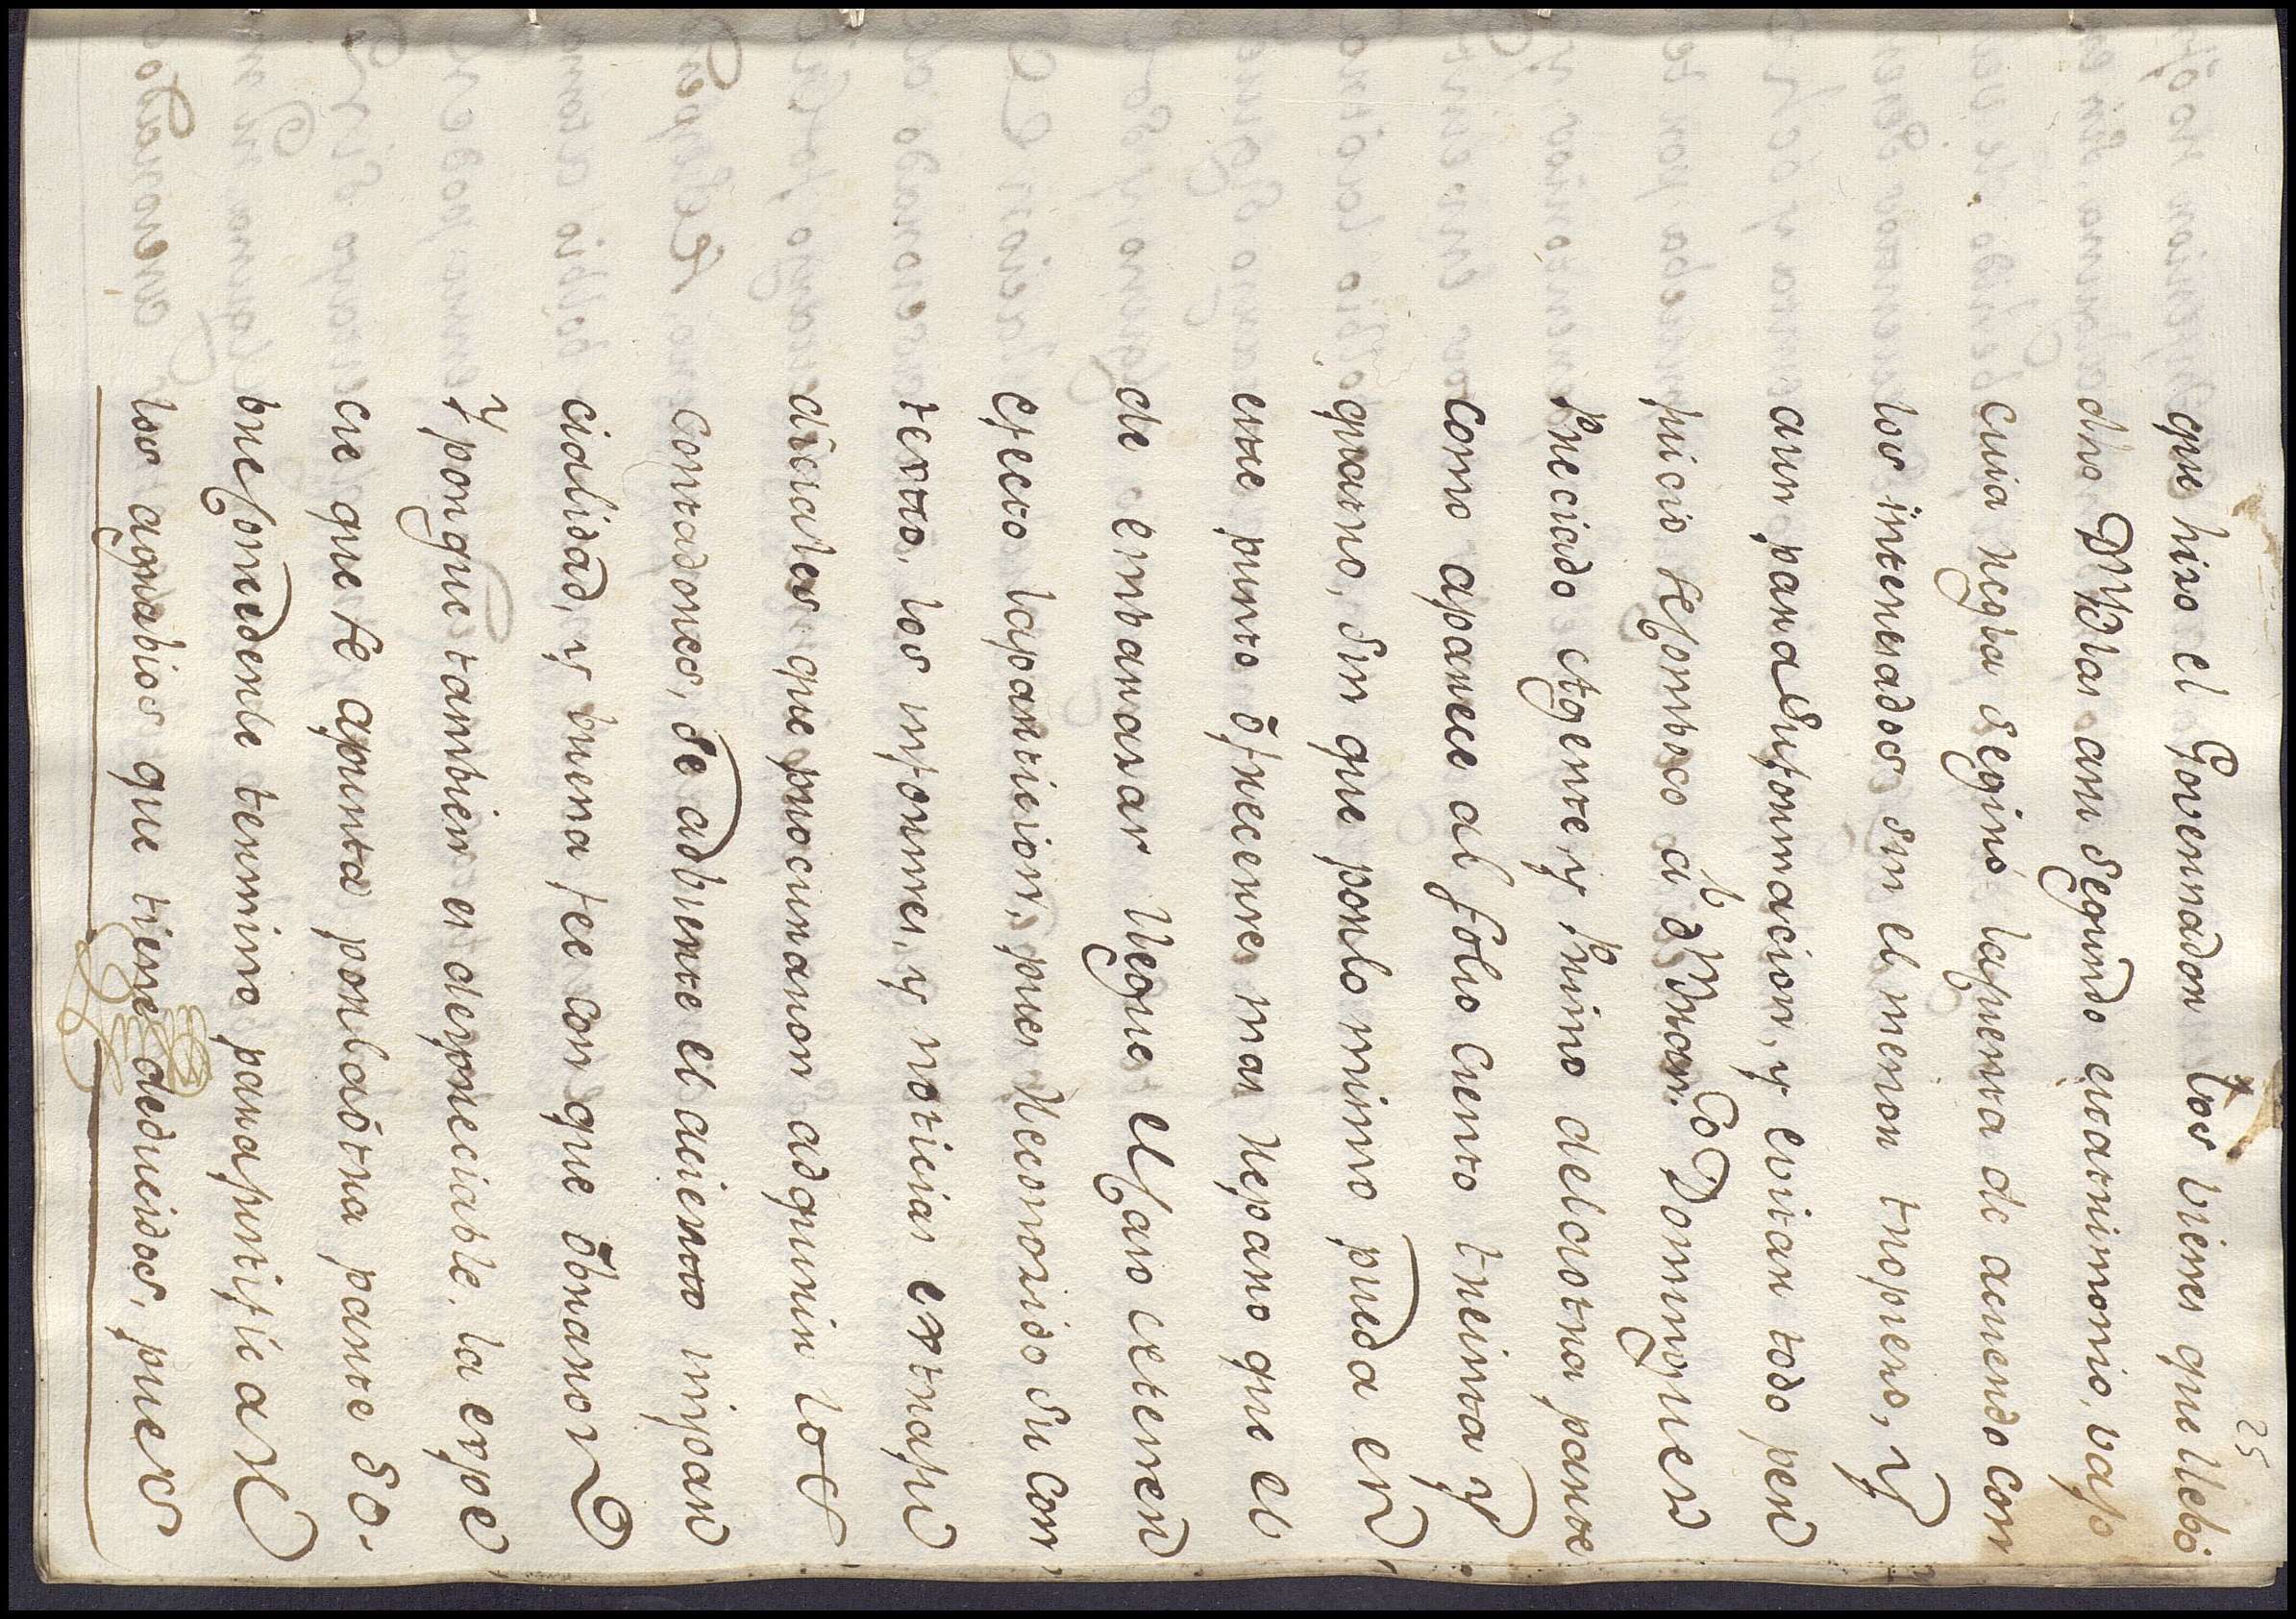 25
que hizo el Governador Los bienes que llebó
dho D.n Blas asu Segundo matrimonio, bajo
cuia regla seginó lapuerta de acuerdo con
los interezados sin el menor tropiezo, y
aun para suformacion, y evitar todo per
juicio seConboco á D.n Fran.co Dominguez
Preciado Agente, y Primo delaotra parte
como aparece al folio ciento treinta y
quatro, sin que porlo mismo pueda en
este punto ôfrecerse mas Reparo que el
de embarazar llegue elCaso de tener
efecto laparticion, pues Reconozido su con
texto, los informes, y noticias extraju
diciales que procuraron adquirir los
Contadores, se adbierte el acierto impar
cialidad, y buena fee con que ôbraron
Y porque tambien es despreciable, la espe
cie que se apunta porlaôtra parte so-
bre Concederle termino parajustificar
los agrabios que tiene deducidos, pues